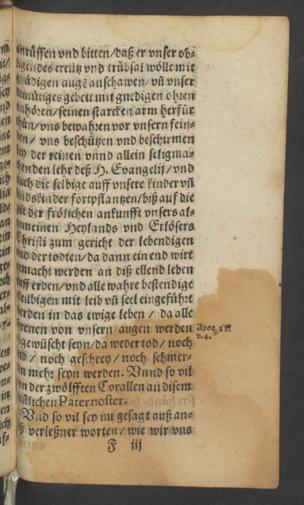 anrüffen vnd bitten/daß er vnser ob-
ligendes creutz vnd trübsal wölle mit
gnädigen augē anschawen/vñ vnser
demütiges gebett mit gnedigen ohren
anhören/seinen starcken arm herfür
thun/vns bewahren vor vnsern fein-
den/ vns beschützen vnd beschirmen
bey der reinen vnnd allein seligma-
chenden lehr deß H. Evangelij/vnd
auch die selbige auff vnsere kinder vñ
kindskinder fortpflantzen/biß auf die
zeit der frölichen ankunfft vnsers al-
gemeinen Heylands vnd Erlösers
Christi zum gericht der lebendigen
vnd der todten/da dann ein end wirt
gemacht werden an diß ellend leben
auff erden/vnd alle wahre bestendige
gleubigen mit leib vñ seel eingeführt
werden in das ewige leben / da alle
threnen von vnsern augen werden
abgewüscht seyn/da weder tod/noch
leid / noch geschrey/ noch schmer-
tzen mehr seyn werden. Vnnd so vil
von der zwölfften Corallen an disem
Christlichen Paternoster.
Apoc. 21.
v. 4.
Vnd so vil sey nu gesagt auß an-
laß verleßner worten/ wie wir vns
F iij